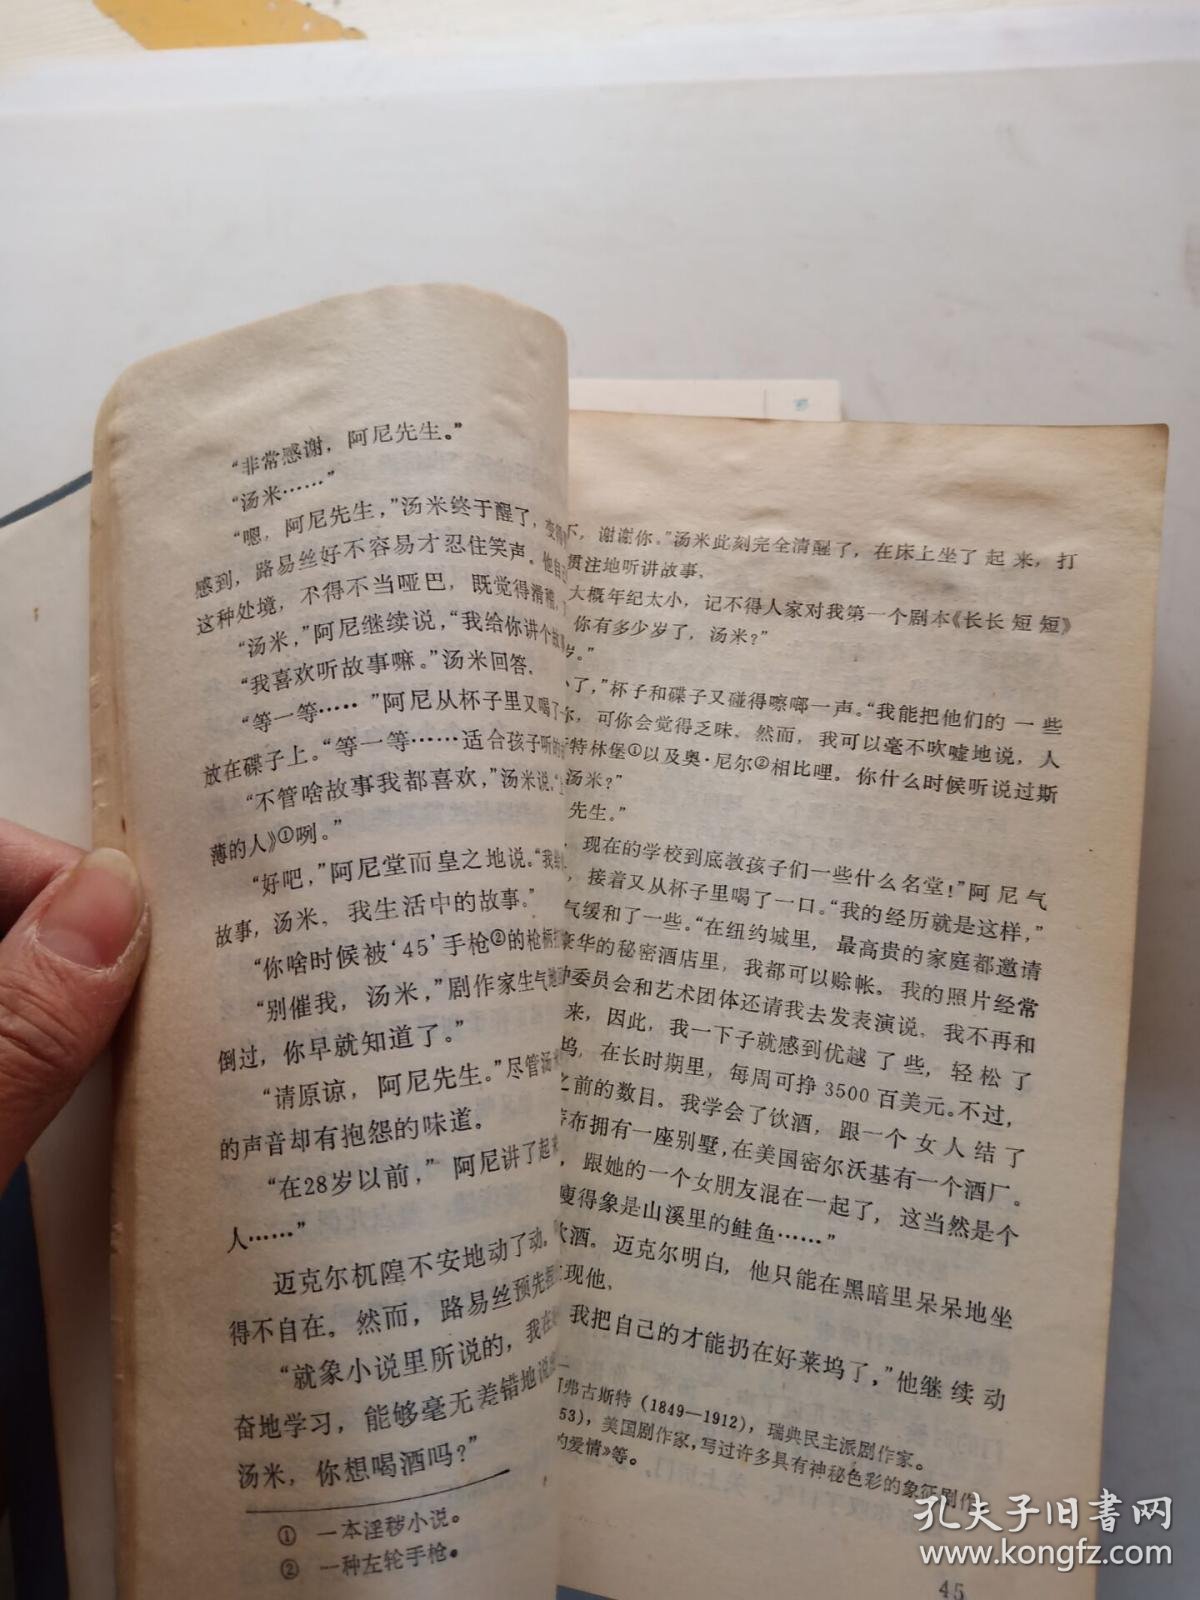 “非常感谢，阿尼先生。”
“汤米……”
“嗯，阿尼先生，”汤米终于醒了，变得
感到，路易丝好不容易才忍住笑声。他自己
这种处境，不得不当哑巴，既觉得滑稽，
“汤米，”阿尼继续说，“我给你讲个故事
“我喜欢听故事嘛。”汤米回答.
“等一等…… ”阿尼从杯子里又喝了一
放在碟子上。“等一等……适合孩子听的
“不管啥故事我都喜欢，”汤米说，
薄的人》①咧。”
“好吧，”阿尼堂而皇之地说。“我给
故事，汤米，我生活中的故事。”
“你啥时候被‘45’手枪②的枪柄
“别催我，汤米，”剧作家生气地
倒过，你早就知道了。”
“请原谅，阿尼先生。”尽管汤米
的声音却有抱怨的味道。
“在28岁以前，”阿尼讲了起来
人……”
迈克尔杌隉不安地动了动，
得不自在。然而，路易丝预先
“就象小说里所说的，我在
奋地学习，能够毫无差错地说
汤米，你想喝酒吗？”
① 一本淫秽小说。
② 一种左轮手枪。
下，谢谢你。”汤米此刻完全清醒了，在床上坐了起来，打
贯注地听讲故事.
大概年纪太小，记不得人家对我第一个剧本《长长短短》
你有多少岁了，汤米？”
岁。”
了，”杯子和碟子又碰得嚓啷一声。“我能把他们的一些
尔，可你会觉得乏味。然而，我可以毫不吹嘘地说，人
特林堡①以及奥·尼尔②相比哩。你什么时候听说过斯
汤米？”
先生。”
现在的学校到底教孩子们一些什么名堂！”阿尼气
，接着又从杯子里喝了一口。“我的经历就是这样，”
气缓和了一些。“在纽约城里，最高贵的家庭都邀请
豪华的秘密酒店里，我都可以赊帐。我的照片经常
委员会和艺术团体还请我去发表演说。我不再和
来，因此，我一下子就感到优越了些，轻松了
坞，在长时期里，每周可挣3500百美元。不过，
之前的数目。我学会了饮酒，跟一个女人结了
布拥有一座别墅，在美国密尔沃基有一个酒厂。
，跟她的一个女朋友混在一起了，这当然是个
瘦得象是山溪里的鲑鱼……”
饮酒。迈克尔明白，他只能在黑暗里呆呆地坐
现他.
我把自己的才能扔在好莱坞了，”他继续动
弗古斯特（1849—1912），瑞典民主派剧作家。
53），美国剧作家，写过许多具有神秘色彩的象征剧作
的爱情》等。
45
孔夫子旧书网
www.kongfz.com